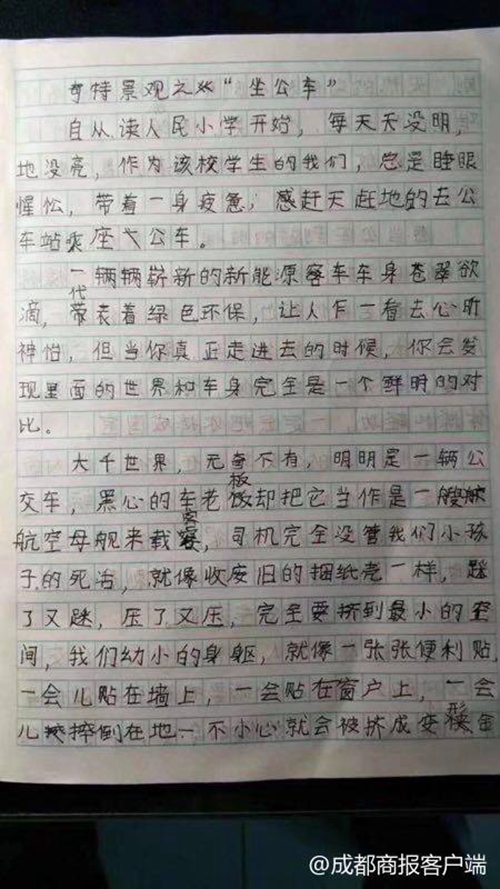 奇特景观之“坐公车”
自从读人民小学开始，每天天没明，
地没亮，作为该校学生的我们，总是睡眼
惺忪，带着一身疲惫，感赶天赶地的去公
车站乘座公车。
一辆辆崭新的新能源客车车身苍翠欲
滴，代表着绿色环保，让人乍一看去心旷
神怡，但当你真正走进去的时候，你会发
现里面的世界和车身完全是一个鲜明的对
比。
大千世界，无奇不有，明明是一辆公
交车，黑心的车老板却把它当作是一艘
航空母舰来载客，司机完全没管我们小孩
子的死活，就像收废旧的捆纸壳一样，踩
了又踩，压了又压，完全要挤到最小的空
间，我们幼小的身躯，就像一张张便利贴，
一会儿贴在墙上，一会贴在窗户上，一会
儿摔倒在地一不小心就会被挤成变形金
@成都商报客户端